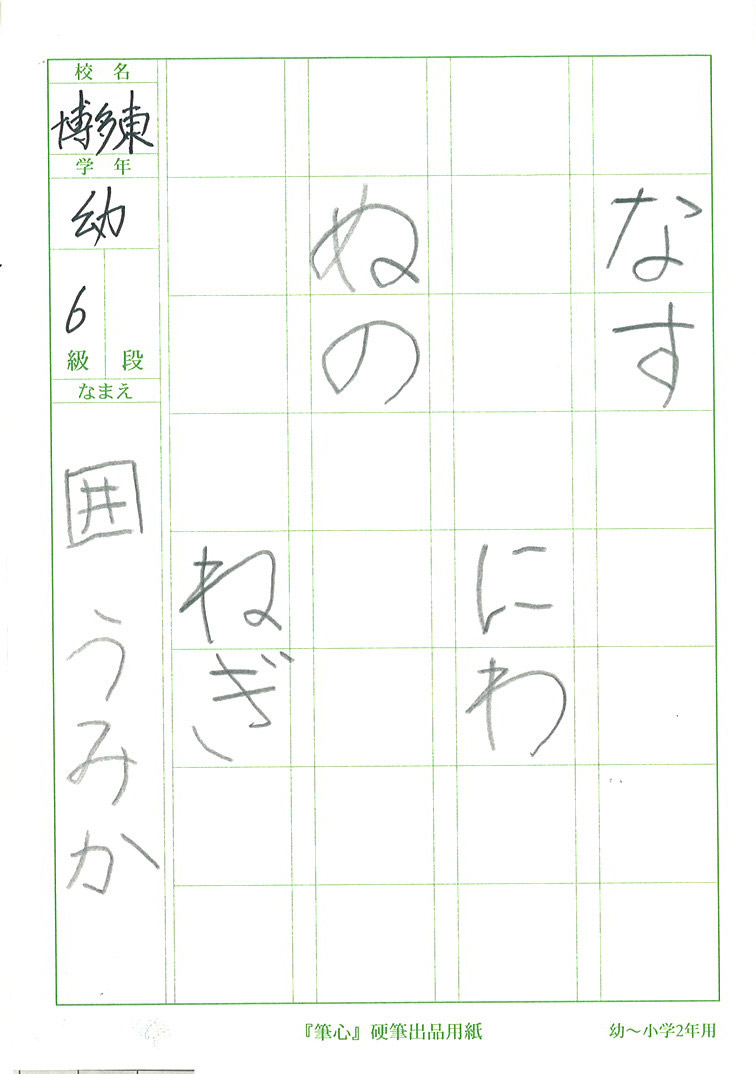 なす
にわ
ぬの
ねぎ
校名
博多東
学年
幼
6
級 段
なまえ
囲 うみか
『筆心』硬筆出品用紙
幼～小学2年用